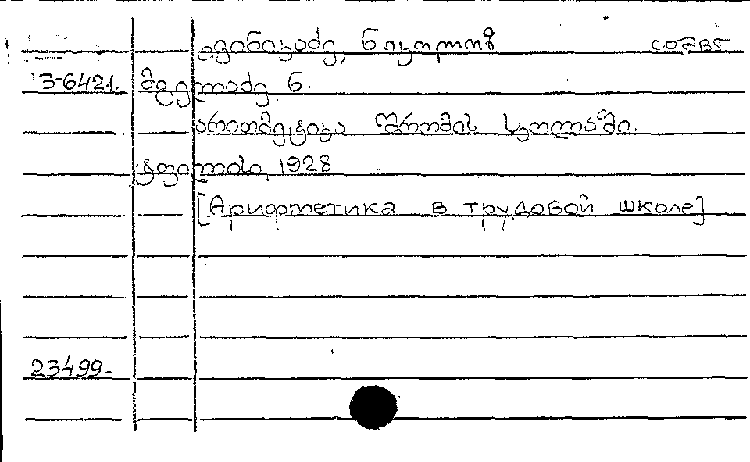 ნიკოლოზ
3-6421. მგელაძე ნ.
არითმეტიკა შრომის სკოლაში.
ტფილისი, 1928
[Арифметика в трудовой школе]
23499-